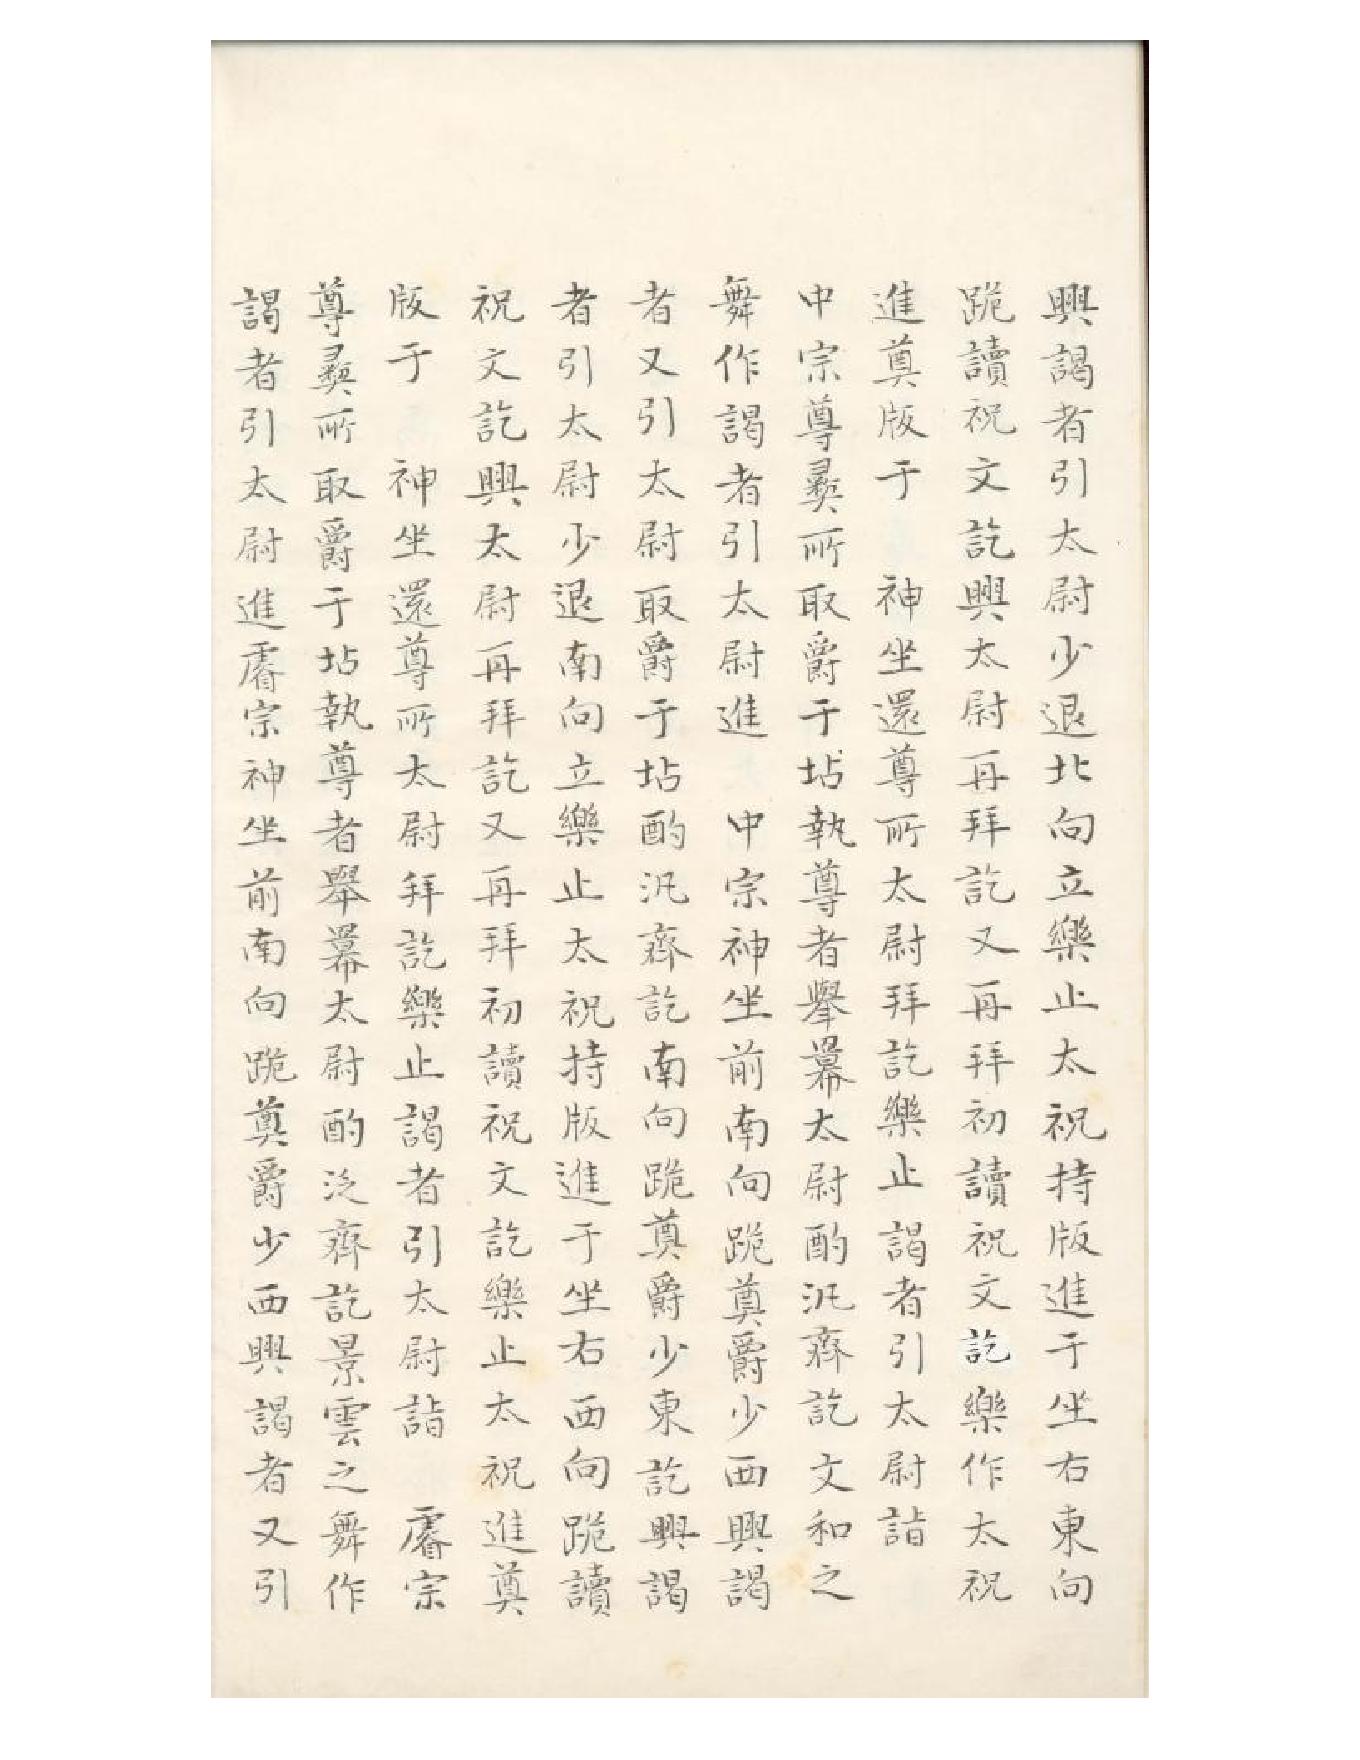 興謁者引太尉少退北向立樂止太祝持版進于坐右東向
跪讀祝文訖興太尉再拜訖又再拜初讀祝文訖樂作太祝
進奠版于　神坐還尊所太尉拜訖樂止謁者引太尉詣
中宗尊彞所取爵于坫執尊者舉羃太尉酌汎齊訖文和之
舞作謁者引太尉進　中宗神坐前南向跪奠爵少西興謁
者又引太尉取爵于坫酌汎齊訖南向跪奠爵少東訖興謁
者引太尉少退南向立樂止太祝持版進于坐右西向跪讀
祝文訖興太尉再拜訖又再拜初讀祝文訖樂止太祝進奠
版于　神坐還尊所太尉拜訖樂止謁者引太尉詣　睿宗
尊彞所取爵于坫執尊者舉羃太尉酌泛齊訖景雲之舞作
謁者引太尉進睿宗神坐前南向跪奠爵少西興謁者又引